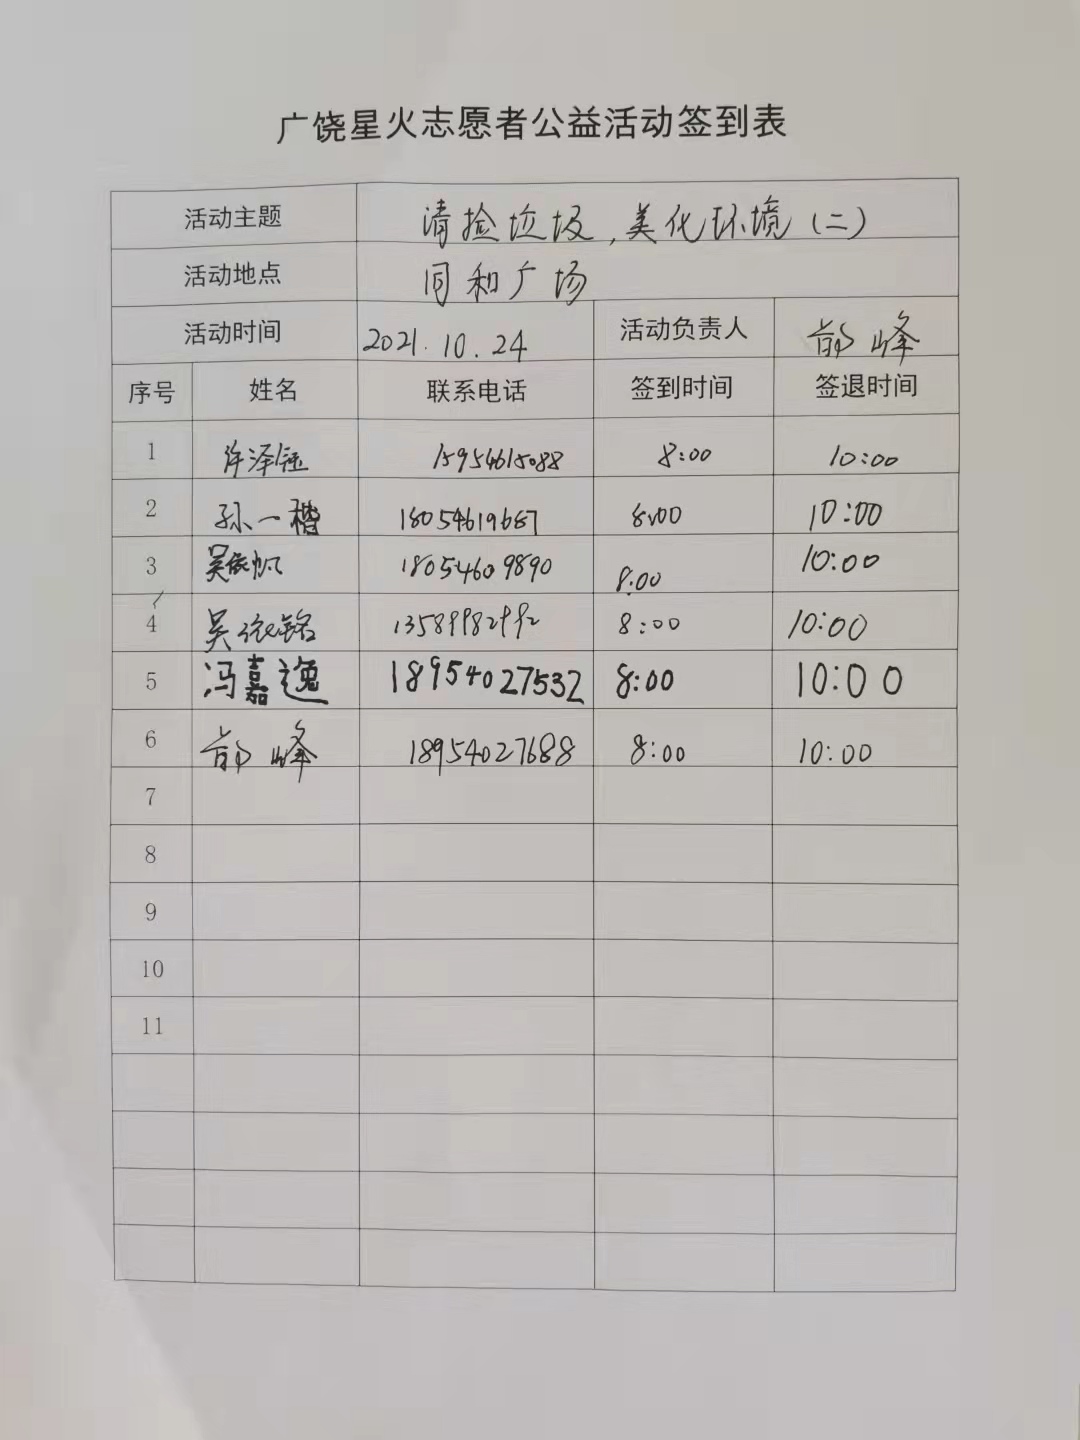 广饶星火志愿者公益活动签到表
活动主题 清捡垃圾,美化环境(二)
活动地点 同和广场
活动时间 2021.10.24 活动负责人 郇峰
序号 姓名 联系电话 签到时间 签退时间
1 许泽钰 15954615088 8:00 10:00
2 孙一楷 18054619687 8:00 10:00
3 吴依帆 18054609890 8:00 10:00
4 吴依铭 8:00 10:00
5 冯嘉逸 18954027532 8:00 10:00
6 郇峰 18954027688 8:00 10:00
7
8
9
10
11